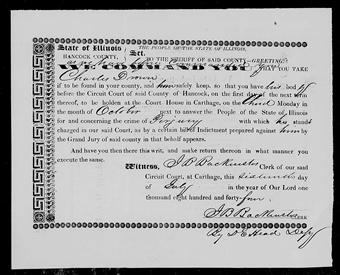 State of Illinois, THE PEOPLE OF THE STATE OF ILLINOIS,
HANCOCK COUNTY, Sct. TO THE SHERIFF OF SAID COUNTY—GREETING:
WE COMMAND YOU THAT YOU TAKE
Charles
if to be found in your county, and him safely keep, so that you have his body
before the Circuit Court of said County of Hancock, on the first day of the next term
thereof, to be holden at the Court House in Carthage, on the third Monday in
the month of October next to answer the People of the State of Illinois
for and concerning the crime of Perjury with which he stands
charged in our said Court, as by a certain billd Indictment prepared against him by
the Grand Jury of said county in that behalf appears.
And have you then there this writ, and make return thereof in what manner you
execute the same.
Witness, J B Backenstos Clerk of our said
Circuit Court, at Carthage, this day
of July in the year of Our Lord one
thousand eight hundred and forty-four
J. B. Backenstos CLERK
By D E Head Depy